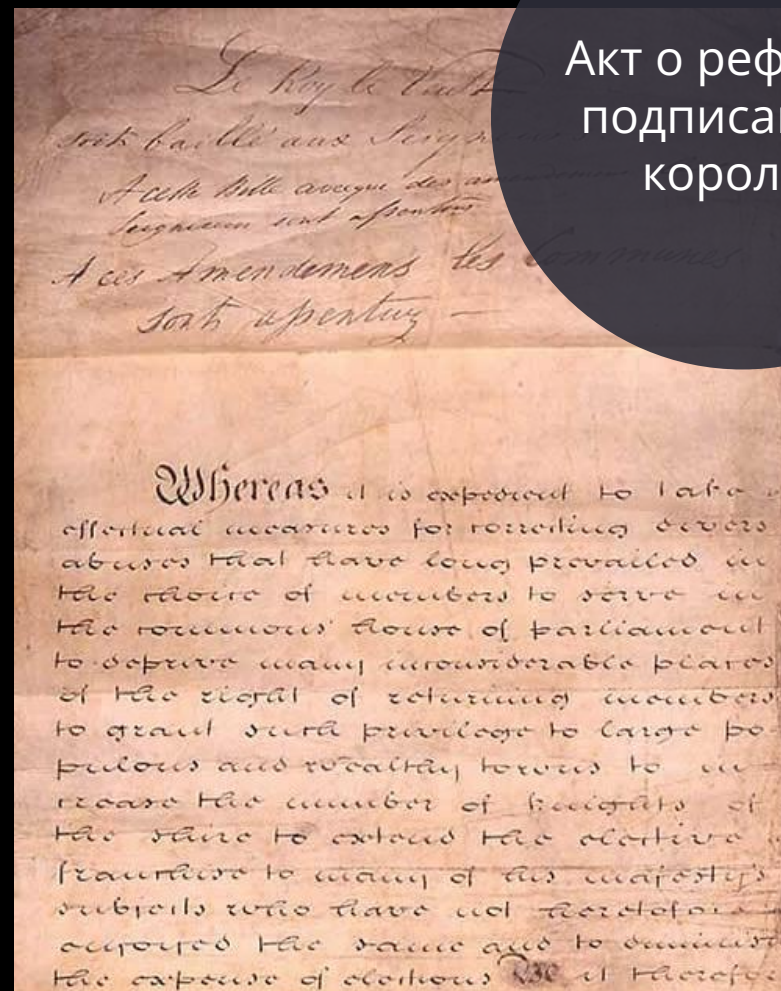 Акт о реф
подписа
корол
Le Roy le Veult
soit baillé aux Seigneurs
A ceste Bille avecque des amendemens
Seigneurs sont assentus
A ces Amendemens les Communes
sont assentuz —
Whereas it is expedient to take
effectual measures for correcting divers
abuses that have long prevailed in
the choice of members to serve in
the commons house of parliament
to deprive many inconsiderable places
of the right of returning members
to grant such privilege to large po
pulous and wealthy towns to in
crease the number of knights of
the shire to extend the elective
franchise to many of his majesty's
subjects who have not heretofore
enjoyed the same and to diminish
the expense of elections Be it therefor